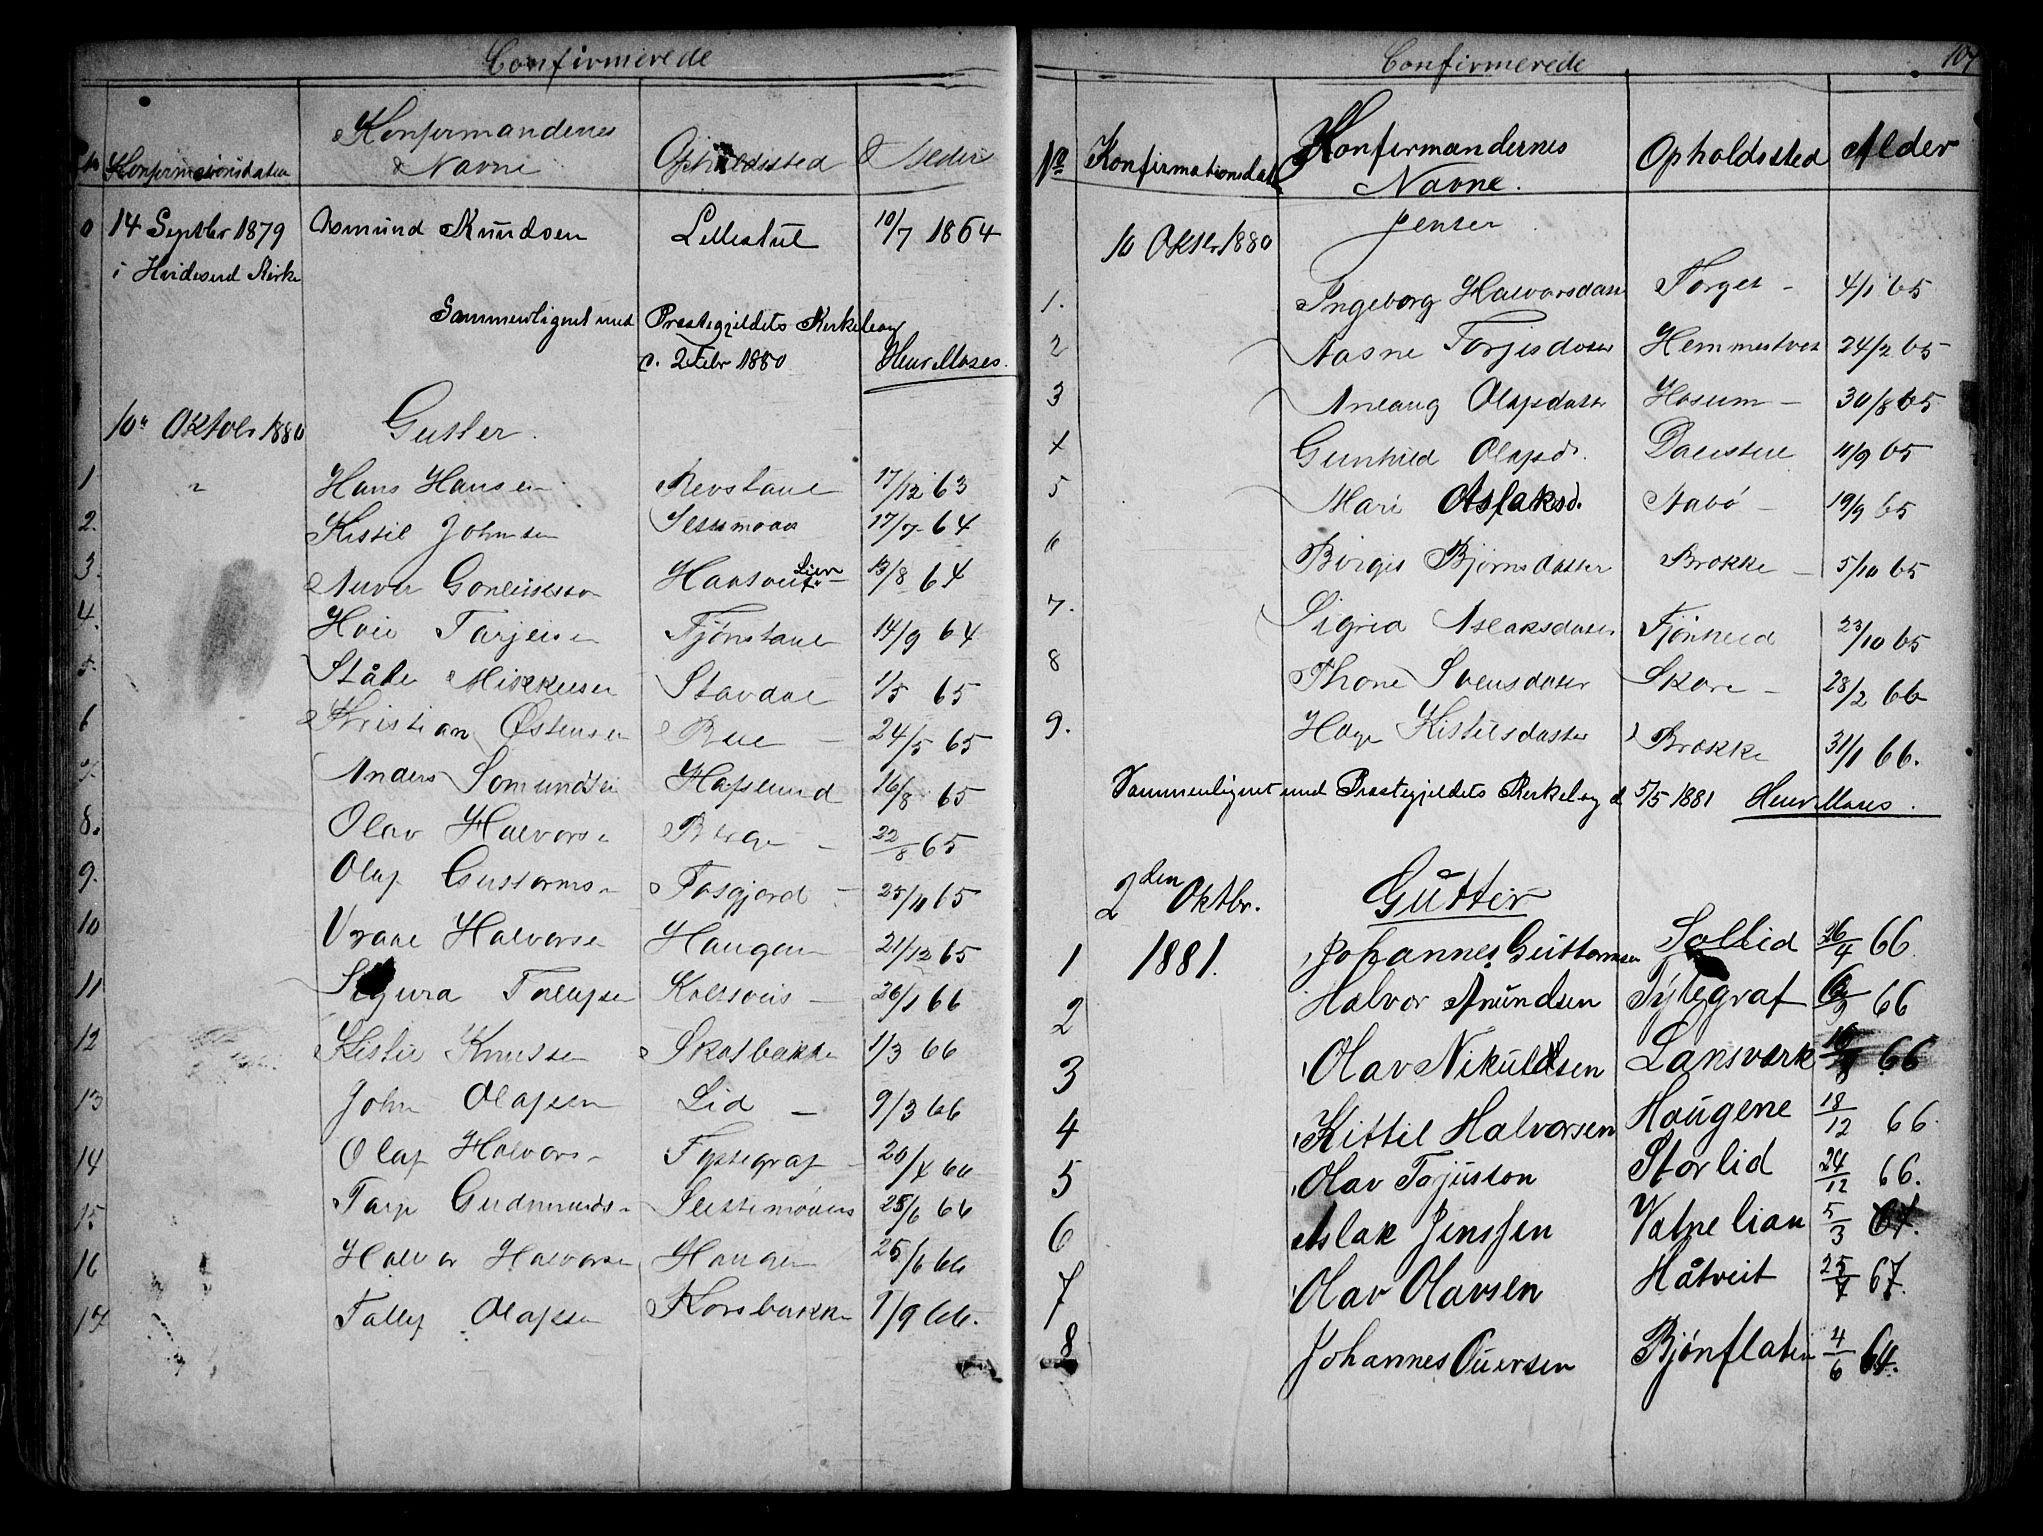 Confirmerede
No Konfirmationsdaten Konfirmandernes Navne Opholdssted Alder
0 14 Septbr 1879 Asmund Knudsen Lillestul 10/7 1864
i Hvideseid Kirke
Sammenlignet med Præstegjeldets Kirkebog
d. 2 Febr 1880 Henr Moses.
10de Oktobr 1880 Gutter.
1 " Hans Hansen Revstaul 17/12 63
2. Kittil Johnsen 17/7 64
3. Gunleiksson Haatveit Lien 13/8 64
4. Torjeisen Fjønstaul 14/9 64
5. Ståle Mikkelsen Stavdal 1/5 65
6 Kristian Østensen Rue – 24/5 65
7. Anders Somundsen Hafslund 16/8 65
8. Olav Halvorsn Berge – 22/8 65
9. Olaf Guttormsn Fosgjord – 25/11 65
10 Vraal Halvorsen Haugen 21/12 65
11 Sigurd Tollefsen 26/1 66
12 Kittil Knutsen Skotbakke 1/3 66
13 John Olafsen Lid – 9/3 66
14 Olaf Halvorsn Tyttegraf – 20/4 66
15 Gudmundsn 25/6 66
16 Halvor Halvorsen Haugen 25/6 66
17 Tallef Olafsen Korsbakke 1/9 66.
Confirmerede 107
No Konfirmationsdat Konfirmandernes Navne. Opholdssted Alder
10 Oktbr 1880 Jenter
1. Ingeborg Halvorsdatter Torget – 4/1 65
2 Aasne Torjusdatter Hemmestveit 24/2 65
3 Anlaug Olafsdatter Hosum – 30/8 65
4 Gunhild Olafsd. Dalestul 11/9 65
5 Mari Aslaksd. Aabø – 19/9 65
6 Birgit Bjørnsdatter Brokke – 5/10 65
7. Sigrid Aslaksdatter Fjønneid 23/10 65
8 Thone Svensdatter Skore – 28/2 66
9. Hæge Kittilsdatter Brokke 31/1 66.
Sammenlignet med Præstegjeldets Kirkebog d 5/5 1881 Henr Moses.
2den Oktbr. Gutter
1 1881. Johannes Guttormsen Sollid 26/4 66
2 Halvor Anundsen Tytegraf 66
3 Olav Nikuldsen Lansverk 66
4 Kittil Halvorsen Haugene 18/12 66.
5 Olav Torjusson Storlid 24/12 66.
6 Aslak Jenssen Vatnelian 5/3 67.
7 Olav Olavsen Håtveit 25/4 67.
8 Johannes Bjønflatin 4/6 64.